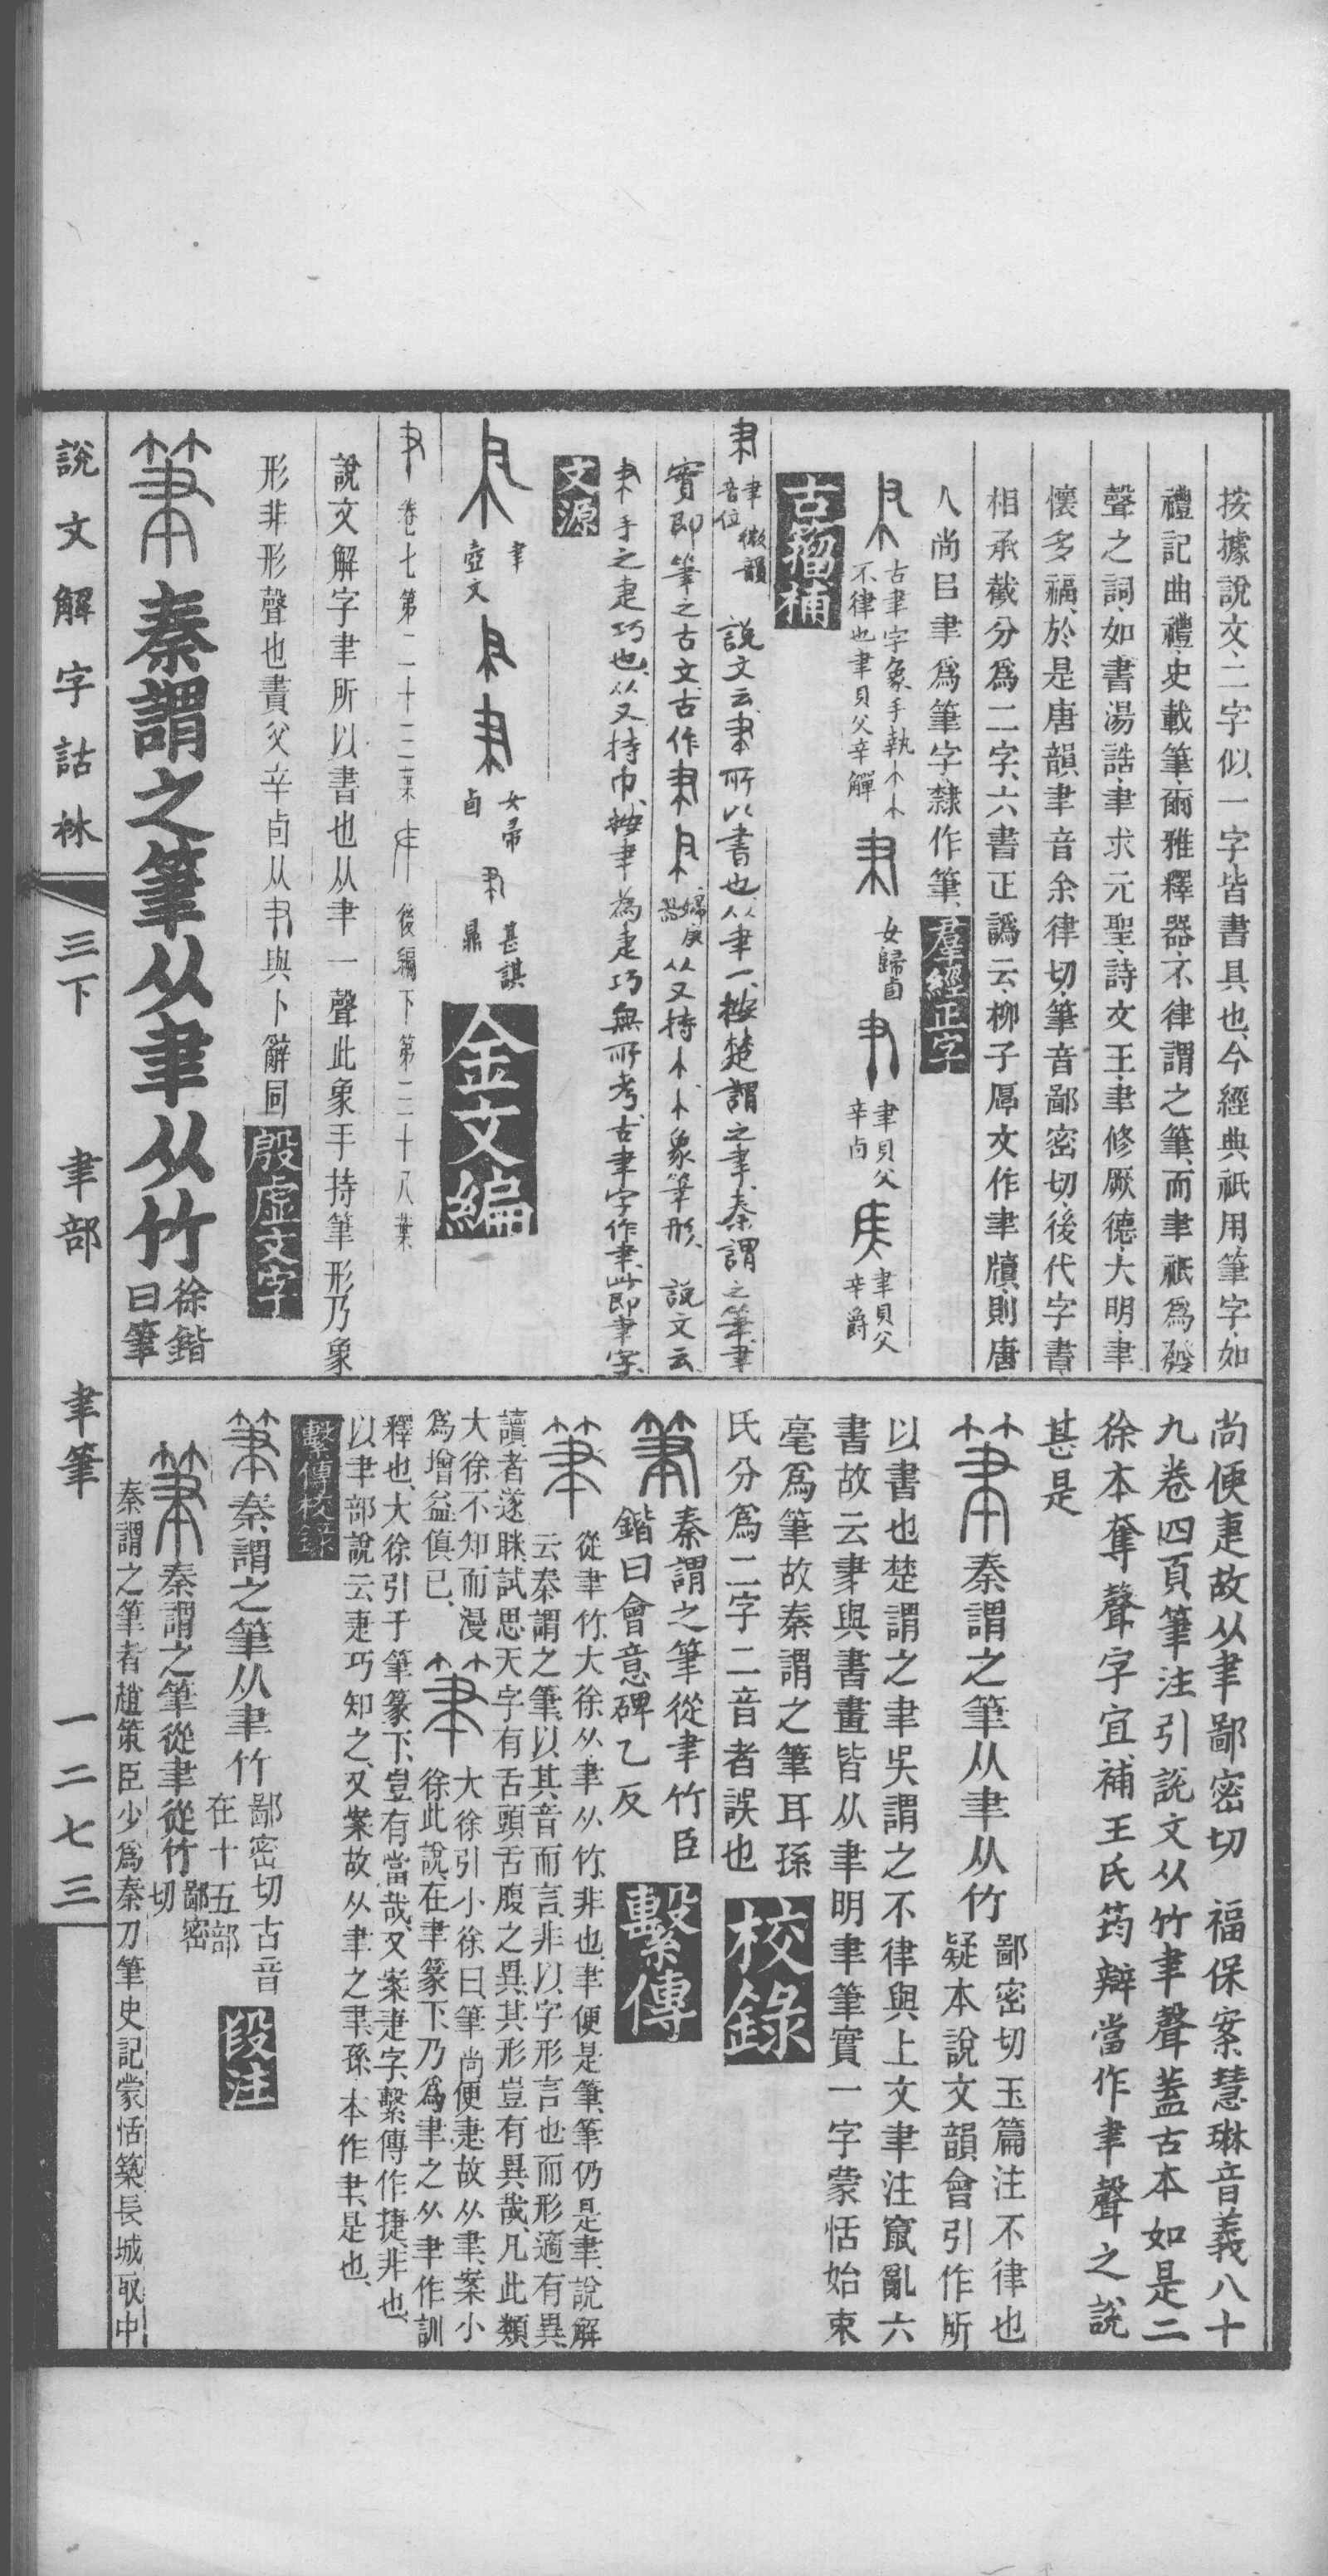 按據說文二字似一字皆書具也今經典祇用筆字如
禮記曲禮史載筆爾雅釋器不律謂之筆而聿祇爲發
聲之詞如書湯誥聿求元聖詩文王聿修厥德大明聿
懷多福於是唐韻聿音余律切筆音鄙密切後代字書
相承截分爲二字六書正譌云柳子厚文作聿牘則唐
人尚㠯聿爲筆字隸作筆羣經正字
古聿字象手執木木
不律也聿貝父辛觶
女歸卣
聿貝父
辛卣
聿貝父
辛爵
古籀補
聿微韻
音位
說文云聿所以書也从聿一按楚謂之聿秦謂之筆聿
實即筆之古文古作聿
从又持木木象筆形說文云
手之疌巧也从又持巾按聿為疌巧無所考古聿字作聿此即聿字
文源
聿
壺文
女帚
卣
甚諆
鼎
金文編
卷七第二十三葉
後編下第三十八葉
說文解字聿所以書也从聿一聲此象手持筆形乃象
形非形聲也書父辛卣从聿與卜辭同殷虛文字
筆秦謂之筆从聿从竹徐鍇
曰筆
尚便疌故从聿鄙密切 福保案慧琳音義八十
九卷四頁筆注引說文从竹聿聲蓋古本如是二
徐本奪聲字宜補王氏筠辯當作聿聲之說
甚是
筆秦謂之筆从聿从竹
鄙密切玉篇注不律也
疑本說文韻會引作所
以書也楚謂之聿吳謂之不律與上文聿注竄亂六
書故云聿與書畫皆从聿明聿筆實一字蒙恬始束
毫爲筆故秦謂之筆耳孫
氏分爲二字二音者誤也校錄
筆秦謂之筆從聿竹臣
鍇曰會意碑乙反
繫傳
筆從聿竹大徐从聿从竹非也聿便是筆筆仍是聿說解
云秦謂之筆以其音而言非以字形言也而形適有異
讀者遂眯試思天字有舌頭舌腹之異其形豈有異哉凡此類
大徐不知而漫
爲增益傎已
筆大徐引小徐曰筆尚便疌故从聿案小
徐此說在聿篆下乃爲聿之从聿作訓
釋也大徐引于筆篆下豈有當哉又案疌字繫傳作捷非也
以聿部說云疌巧知之又案故从聿之聿孫本作聿是也
繫傳校錄
筆秦謂之筆从聿竹
鄙密切古音
在十五部
段注
筆秦謂之筆從聿從竹鄙密
切
秦謂之筆者趙策臣少爲秦刀筆史記蒙恬築長城取中
說文解字詁林 三下 聿部 聿筆 一二七三